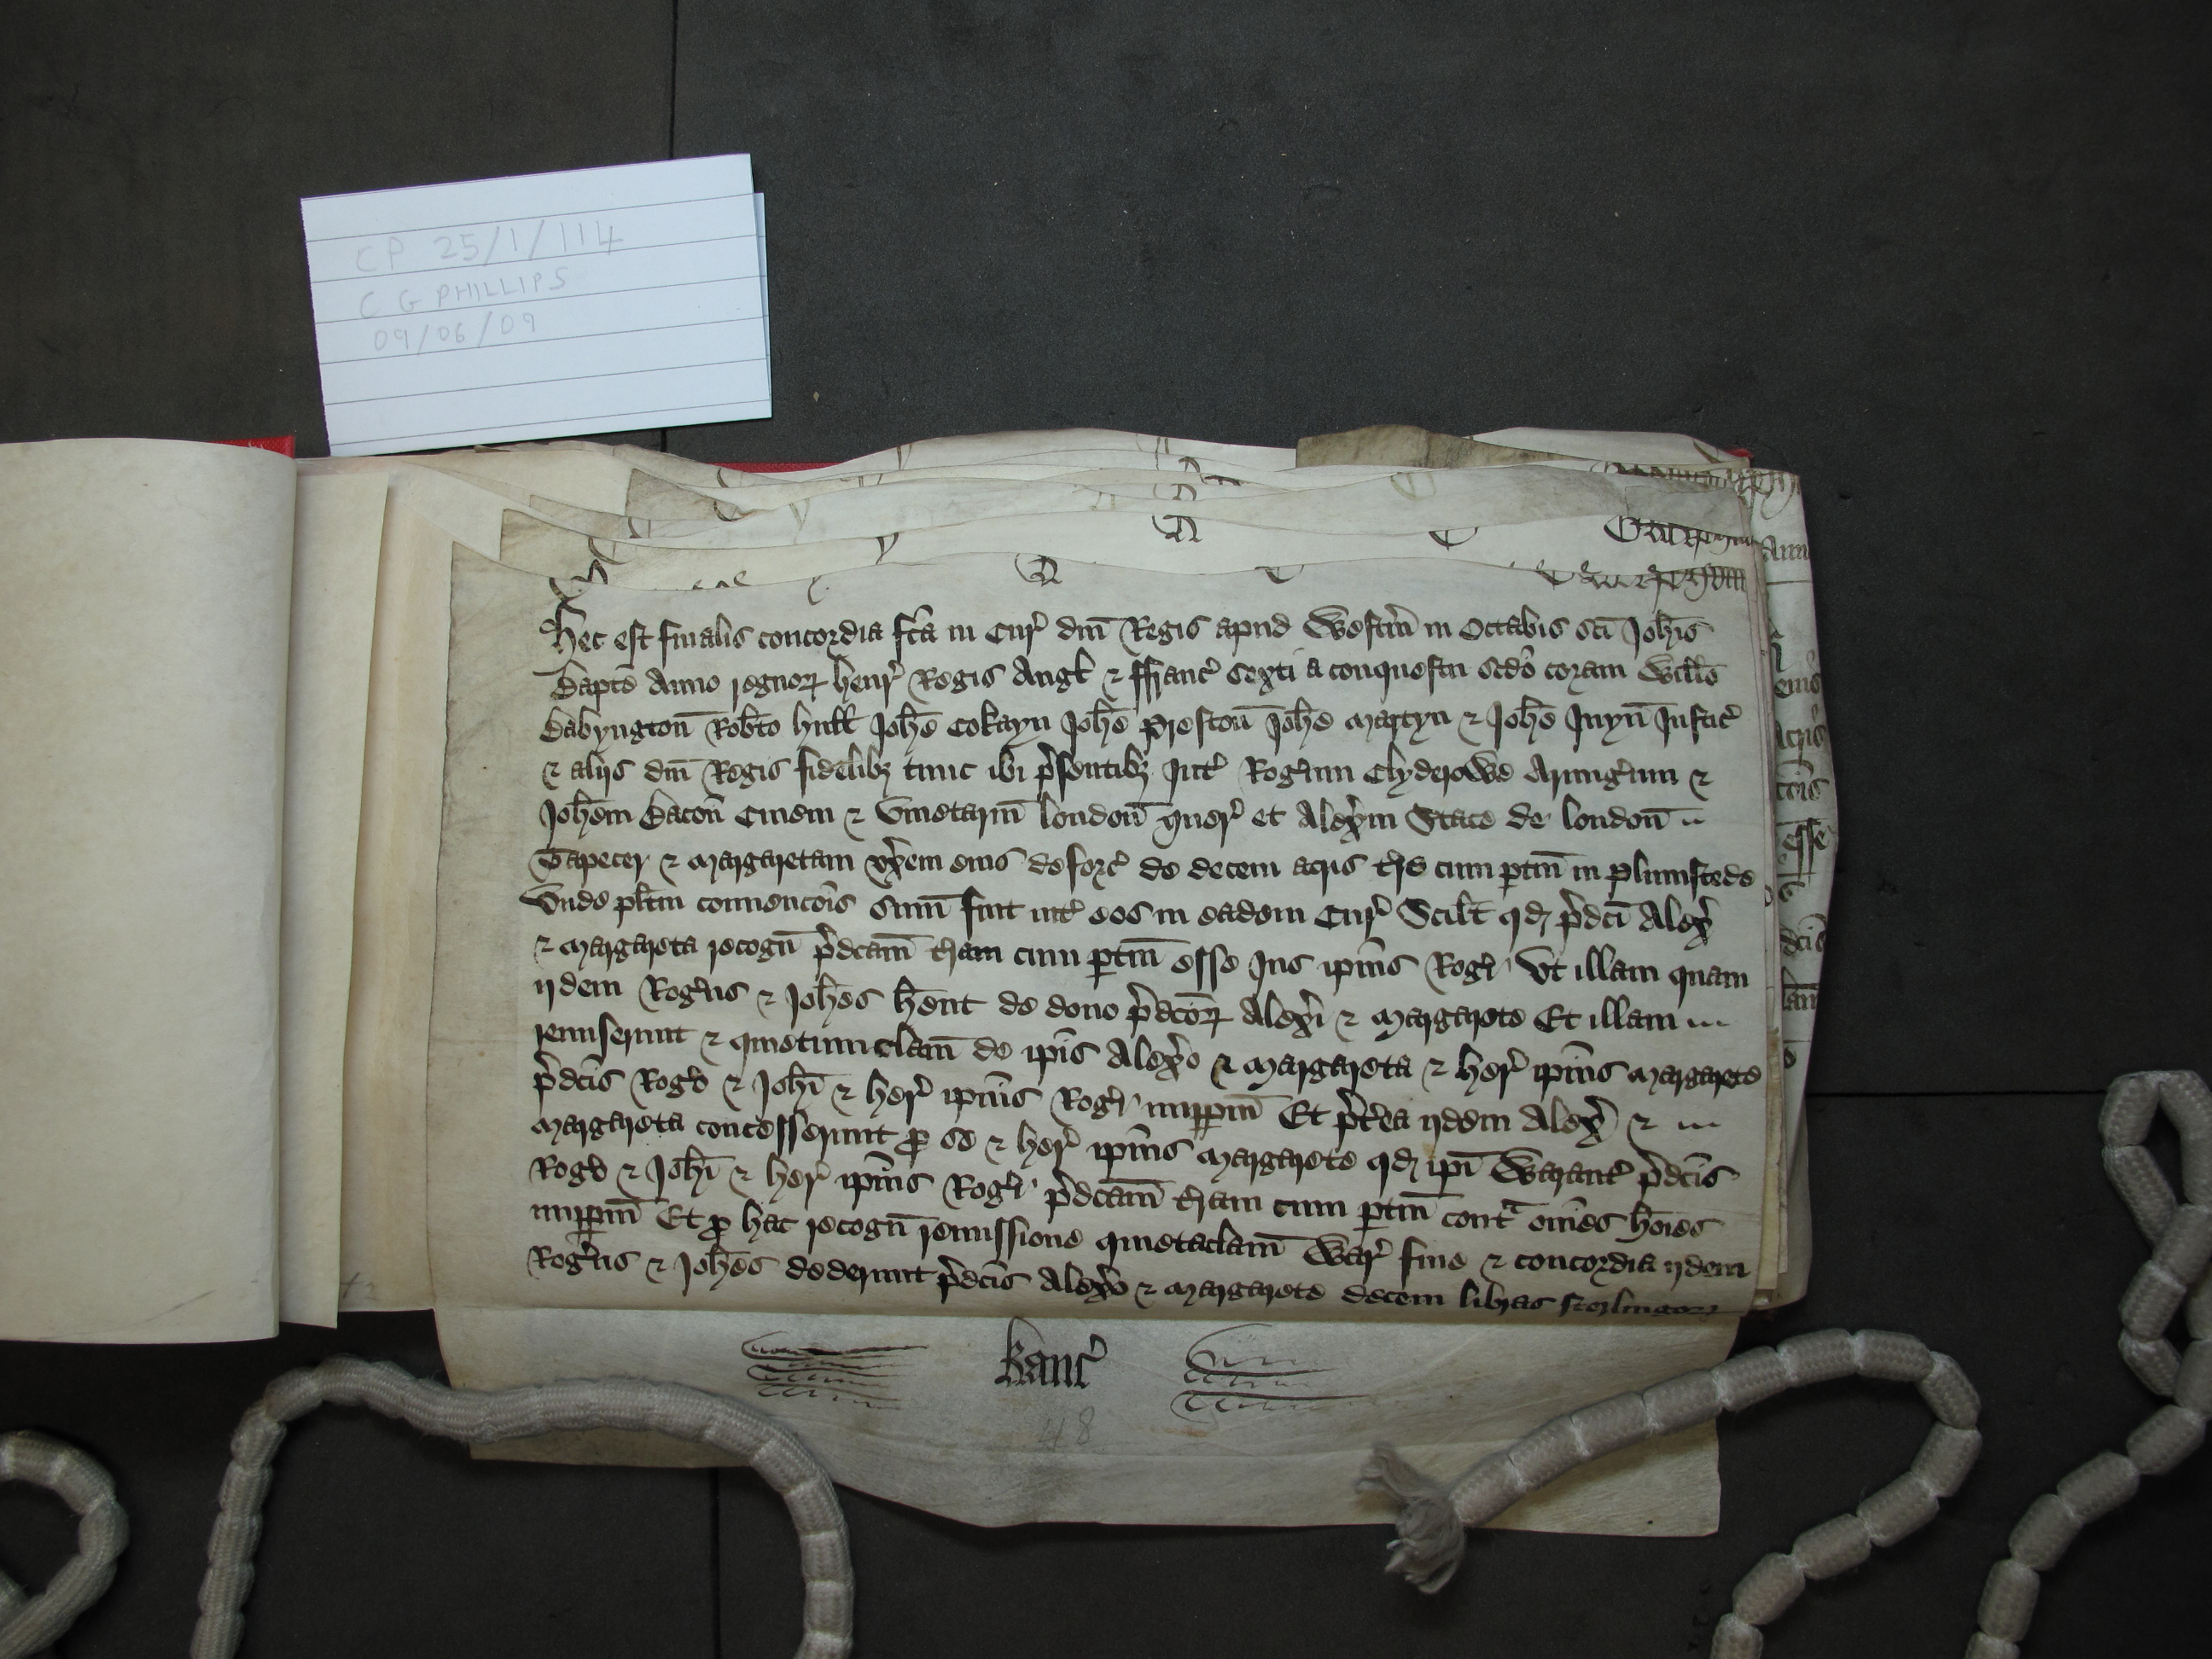 CP 25/1/114
C G PHILLIPS
09/06/09
Hec est finalis concordia fc̃a in Cur̉ dñi Regis apud Westm̃ in Octabis sc̃i Joh̃is
Bapt̃e Anno regnoꝝ Henr̉ Regis Angl̃ ⁊ ffranc̉ sexti a conquestu scdõ coram Will̃o
Babyngton̄ Rob̃to Hull̃ Joh̃e Cokayn Joh̃e Preston̄ Joh̃e Martyn ⁊ Joh̃e Juyn̄ Justic̉
⁊ alijs dñi Regis fidelibȝ tunc ibi p̉sentibȝ Int̉ Rog̉um Clyderowe Armig̉um ⁊
Joh̃em Bacon̄ Ciuem ⁊ Vinetariū London̄ quer̉ et Alex̉m State de London̄
Tapecer ⁊ Margaretam vx̉em eius deforc̉ de decem acris t̉re cum ptiñ in Plumstede
Vnde pl̃itm conuencõis sum̄ fuit int̉ eos in eadem Cur̉ Scilt̃ qđ p̉dc̃i Alex̉
⁊ Margareta recogñ p̉dc̃am t̉ram cum ptiñ esse Jus ip̃ius Rog̉i Vt illam quam
ijdem Rog̉us ⁊ Joh̃es h̃ent de dono p̉dc̃oꝝ Alex̉i ⁊ Margarete Et illam
remiserunt ⁊ quietumclam̄ de ip̃is Alex̉o ⁊ Margareta ⁊ her̉ ip̃ius Margarete
p̉dc̃is Rog̉o ⁊ Joh̃i ⁊ her̉ ip̃ius Rog̉i imppm̄ Et p̉t̉ea ijdem Alex̉ ⁊
Margareta concesserunt ꝓ se ⁊ her̉ ip̃ius Margarete qđ ip̃i Warant̉ p̉dc̃is
Rog̉o ⁊ Joh̃i ⁊ her̉ ip̃ius Rog̉i p̉dc̃am t̉ram cum ptiñ cont̃ om̃es hõies
imppm̄ Et ꝓ hac recogñ remissione quietaclam̄ War̉ fine ⁊ concordia ijdem
Rog̉us ⁊ Joh̃es dederunt p̉dc̃is Alex̉o ⁊ Margarete decem libras sterlingoꝝ
Kanc̉
48